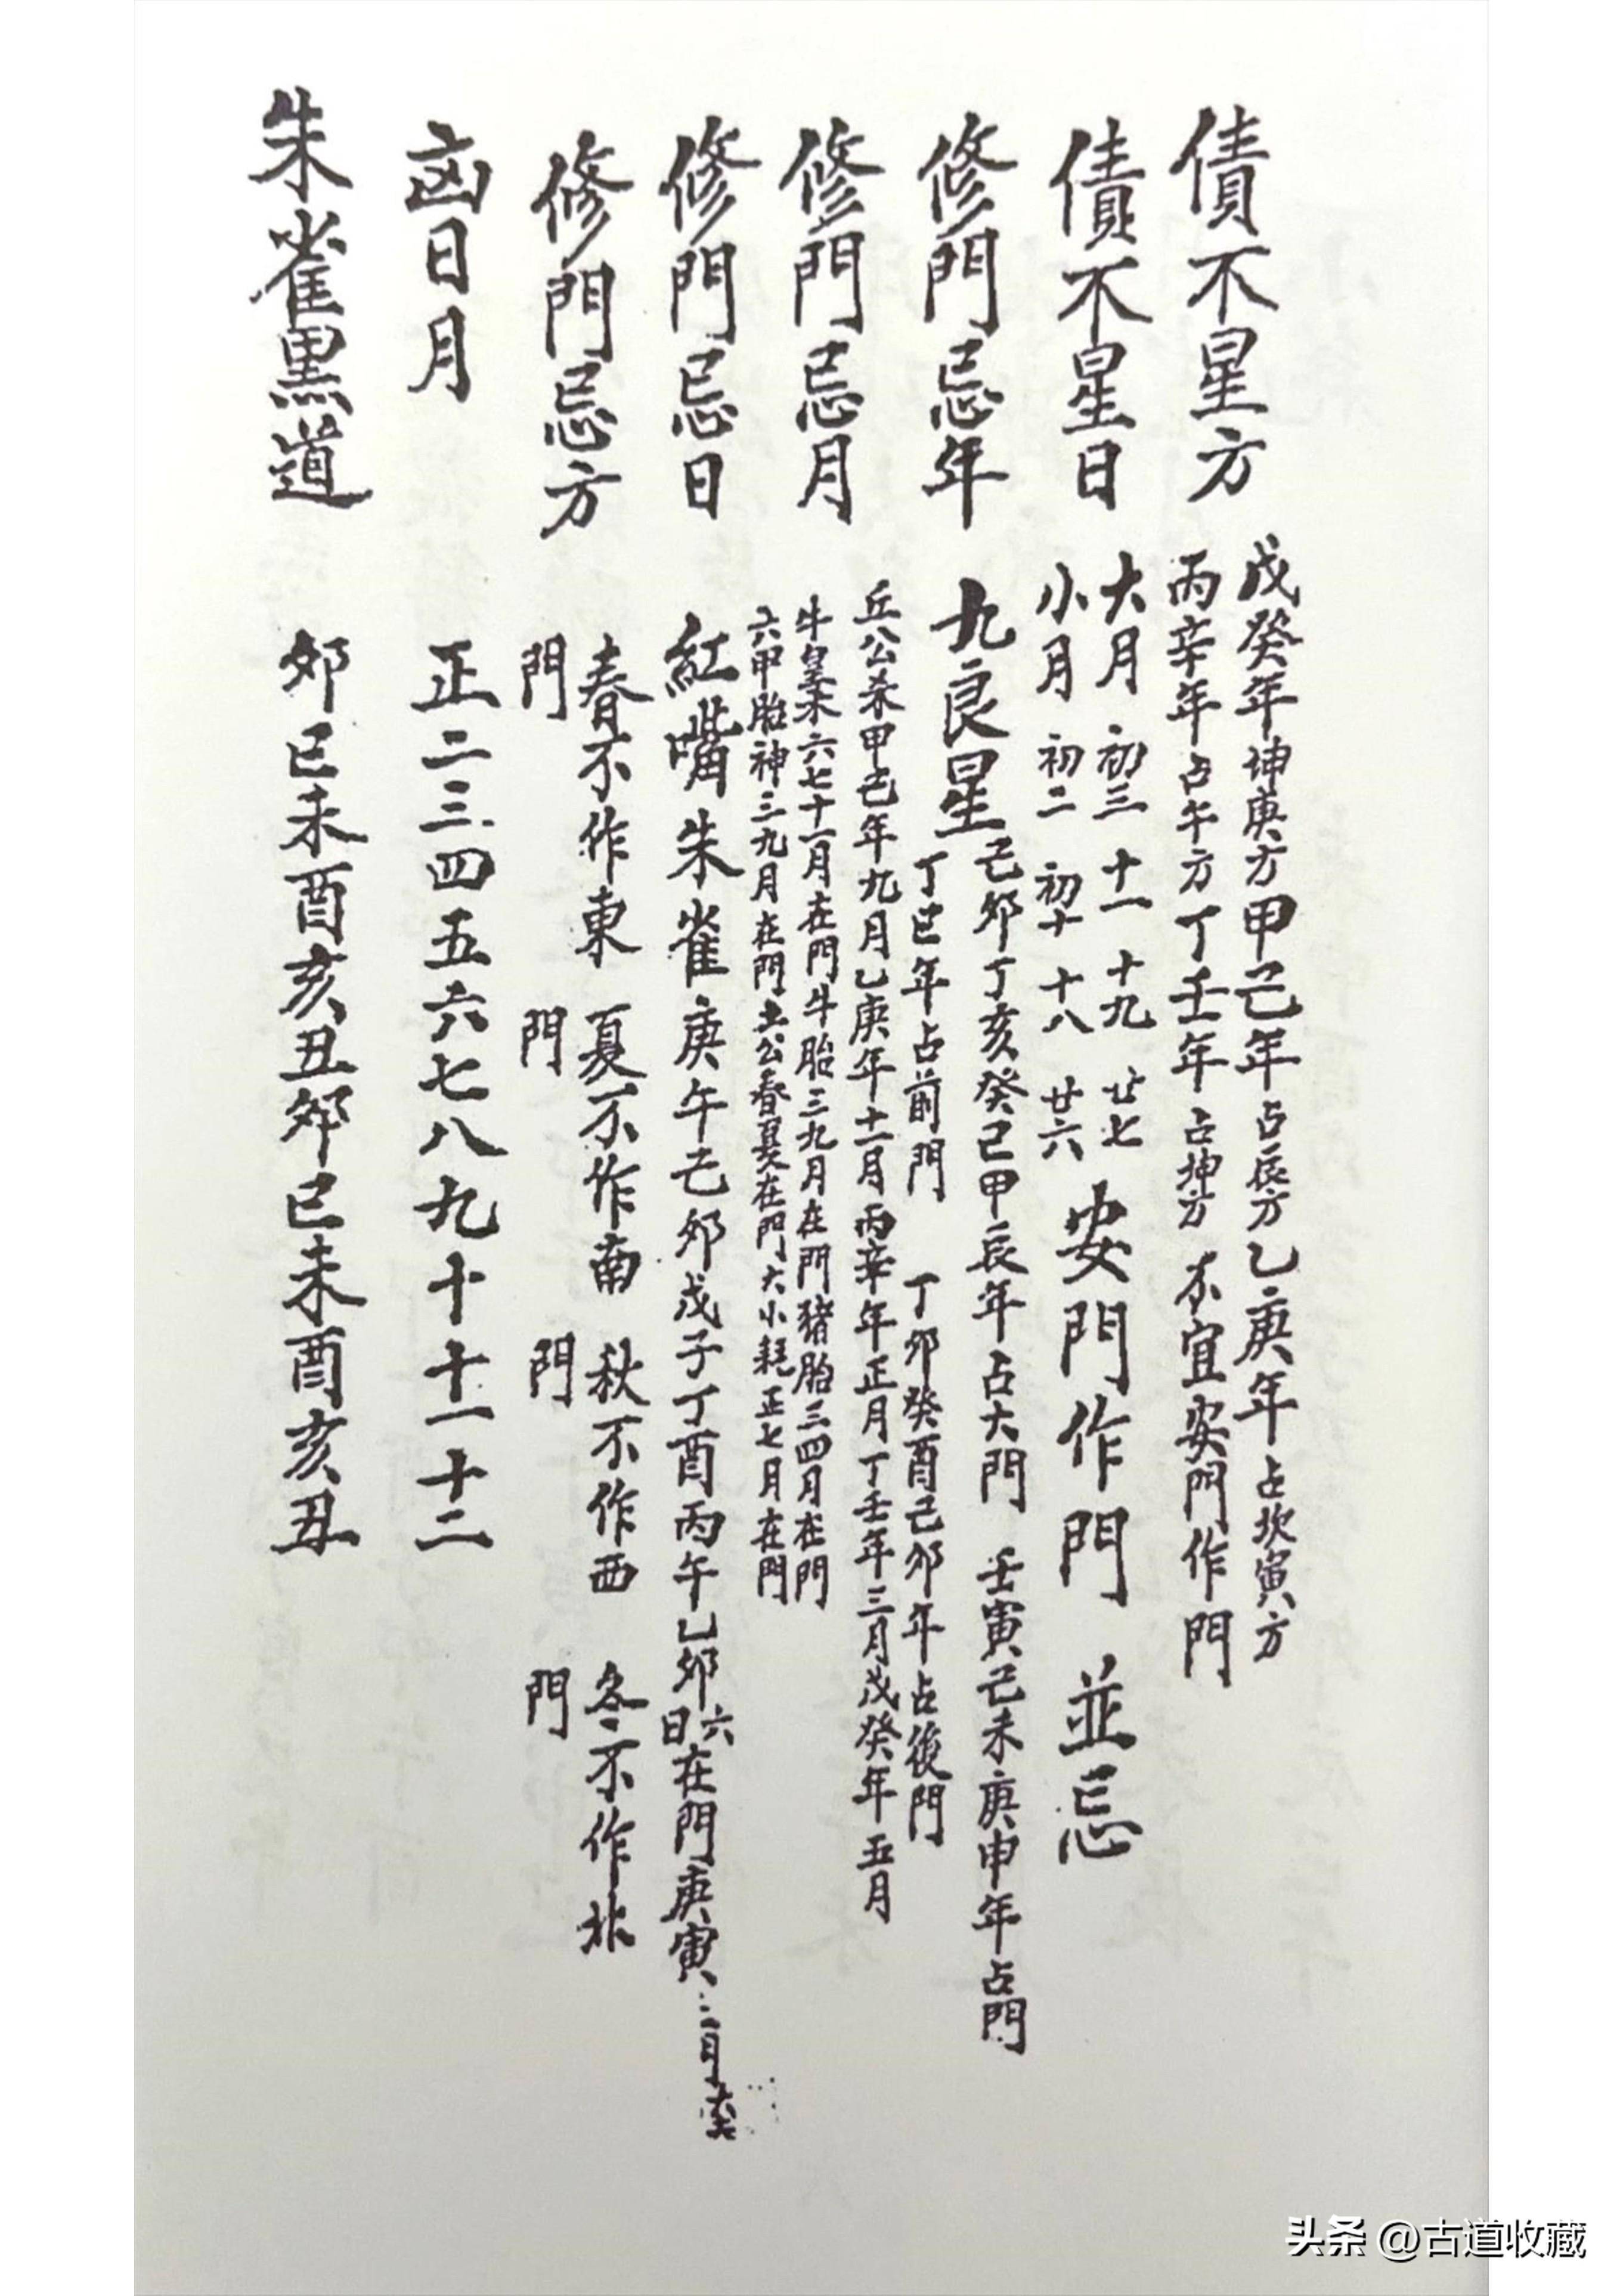 債不星方
戊癸年坤庚方甲己年占辰方乙庚年占坎寅方
丙辛年占午方丁壬年占坤方不宜安門作門
債不星日
大月初三十一十九廿七
小月初二初十十八廿六
安門作門並忌
修門忌年
九良星
己卯丁亥癸己甲辰年占大門壬寅己未庚申年占門
丁巳年占前門丁卯癸酉己卯年占後門
修門忌月
丘公杀甲己年九月乙庚年十一月丙辛年正月丁壬年三月戊癸年五月
牛皇杀六七十一月在門牛胎三九月在門猪胎三四月在門
六甲胎神三九月在門土公春夏在門大小耗正七月在門
修門忌日
紅嘴朱雀庚午己卯戊子丁酉丙午乙卯六日在門庚寅
修門忌方
春不作東門夏不作南門秋不作西門冬不作北門
凶日月
正二三四五六七八九十十一十二
朱雀黑道
卯巳未酉亥丑卯巳未酉亥丑
头条 @古道收藏